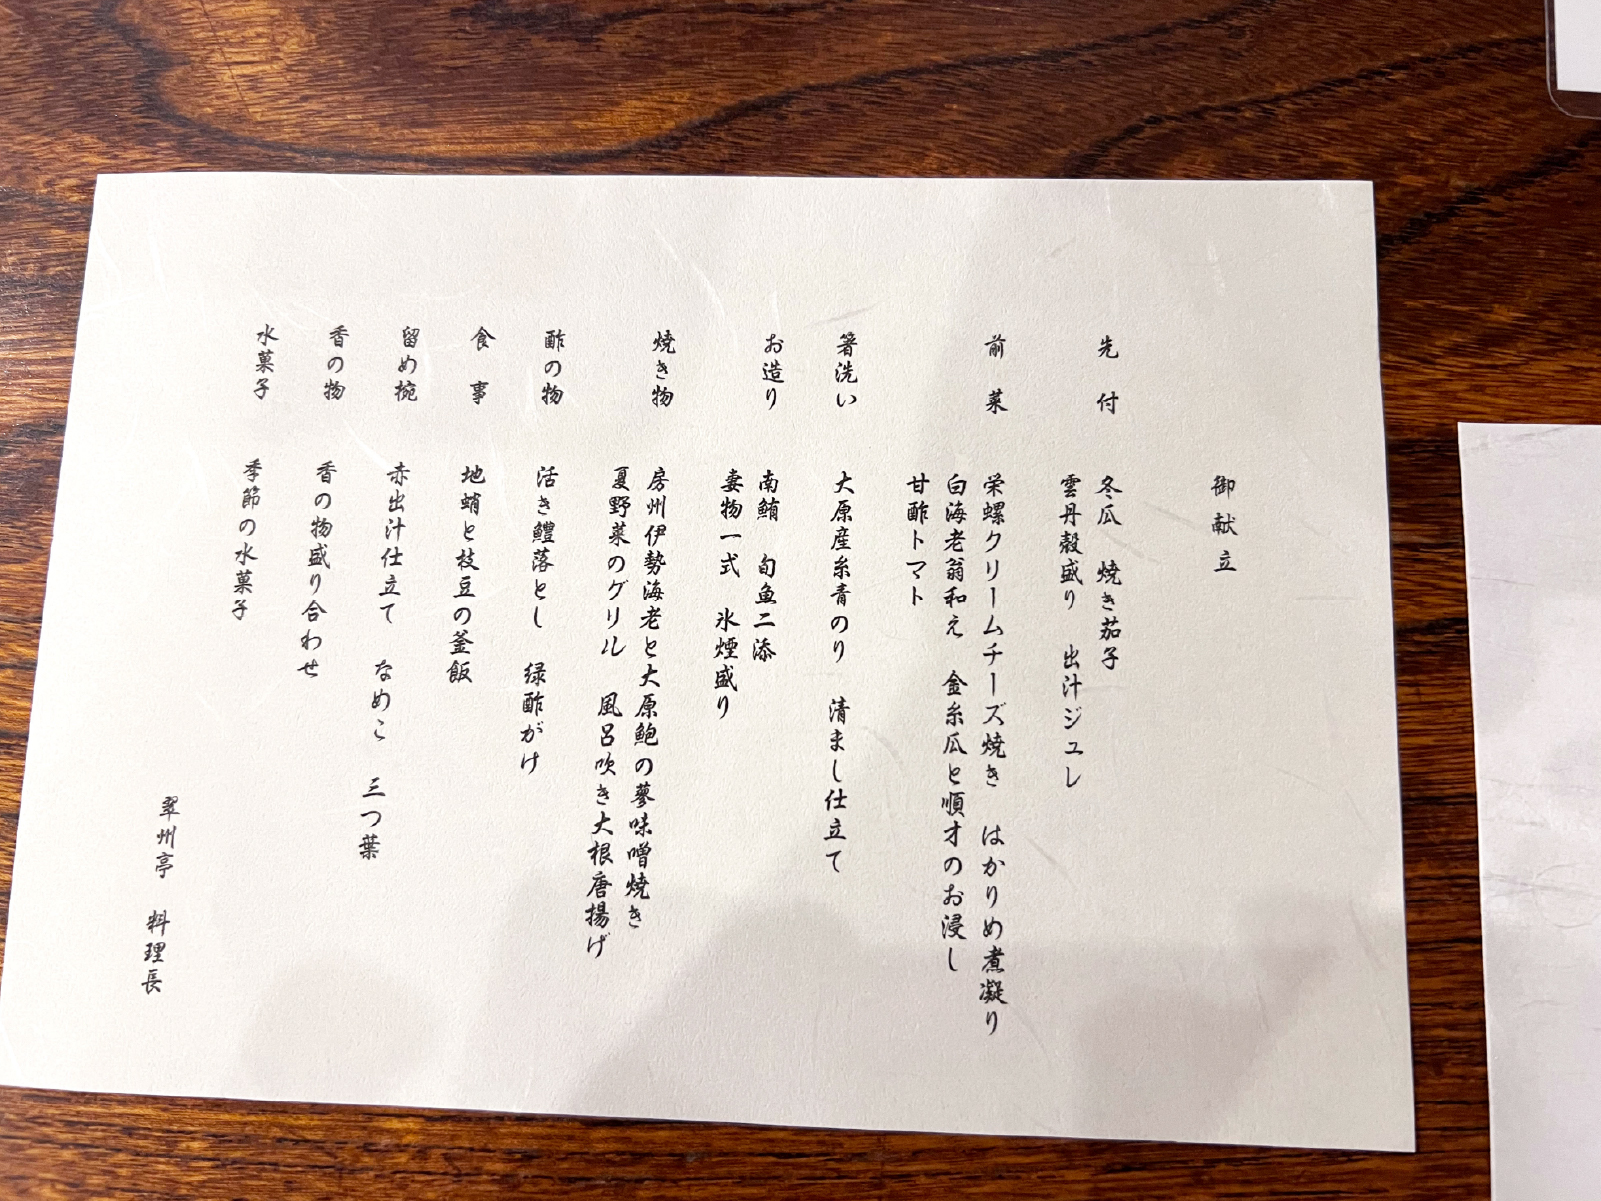 御献立
先付　冬瓜　焼き茄子
雲丹殻盛り　出汁ジュレ
前菜　栄螺クリームチーズ焼き　はかりめ煮凝り
白海老翁和え　金糸瓜と順才のお浸し
甘酢トマト
箸洗い　大原産糸青のり　清まし仕立て
お造り　南鮪　旬魚二添
妻物一式　氷煙盛り
焼き物　房州伊勢海老と大原鮑の蓼味噌焼き
夏野菜のグリル　風呂吹き大根唐揚げ
酢の物　活き鱧落とし　緑酢がけ
食事　地蛸と枝豆の釜飯
留め椀　赤出汁仕立て　なめこ　三つ葉
香の物　香の物盛り合わせ
水菓子　季節の水菓子
翠州亭　料理長